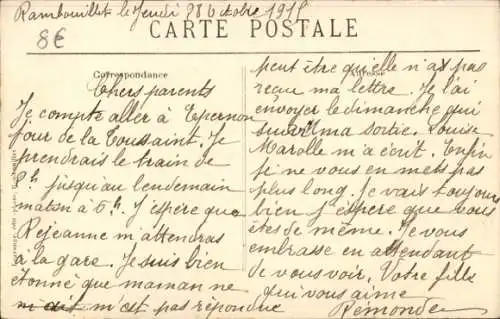 Rambouillet le Jeudi 28 Octobre 1915
8€
CARTE POSTALE
Correspondance
Chers parents
Je compte aller à Epernon
jour de la Toussaint. Je
prendrais le train de
jusqu'au lendemain
matin à 6h. J'espère que
Réjeanne m'attendras
à la gare. Je suis bien
étonné que maman ne
m'est pas répondue
Adresse
peut être qu'elle n'as pas
reçu ma lettre. Je l'ai
envoyer le dimanche qui
suivit ma sortie. Louise
Marolle m'a écrit. Enfin
je ne vous en mets pas
plus long. Je vais toujours
bien j'espère que vous
êtes de même. Je vous
embrasse en attendant
de vous voir. Votre fille
qui vous aime
Remonde